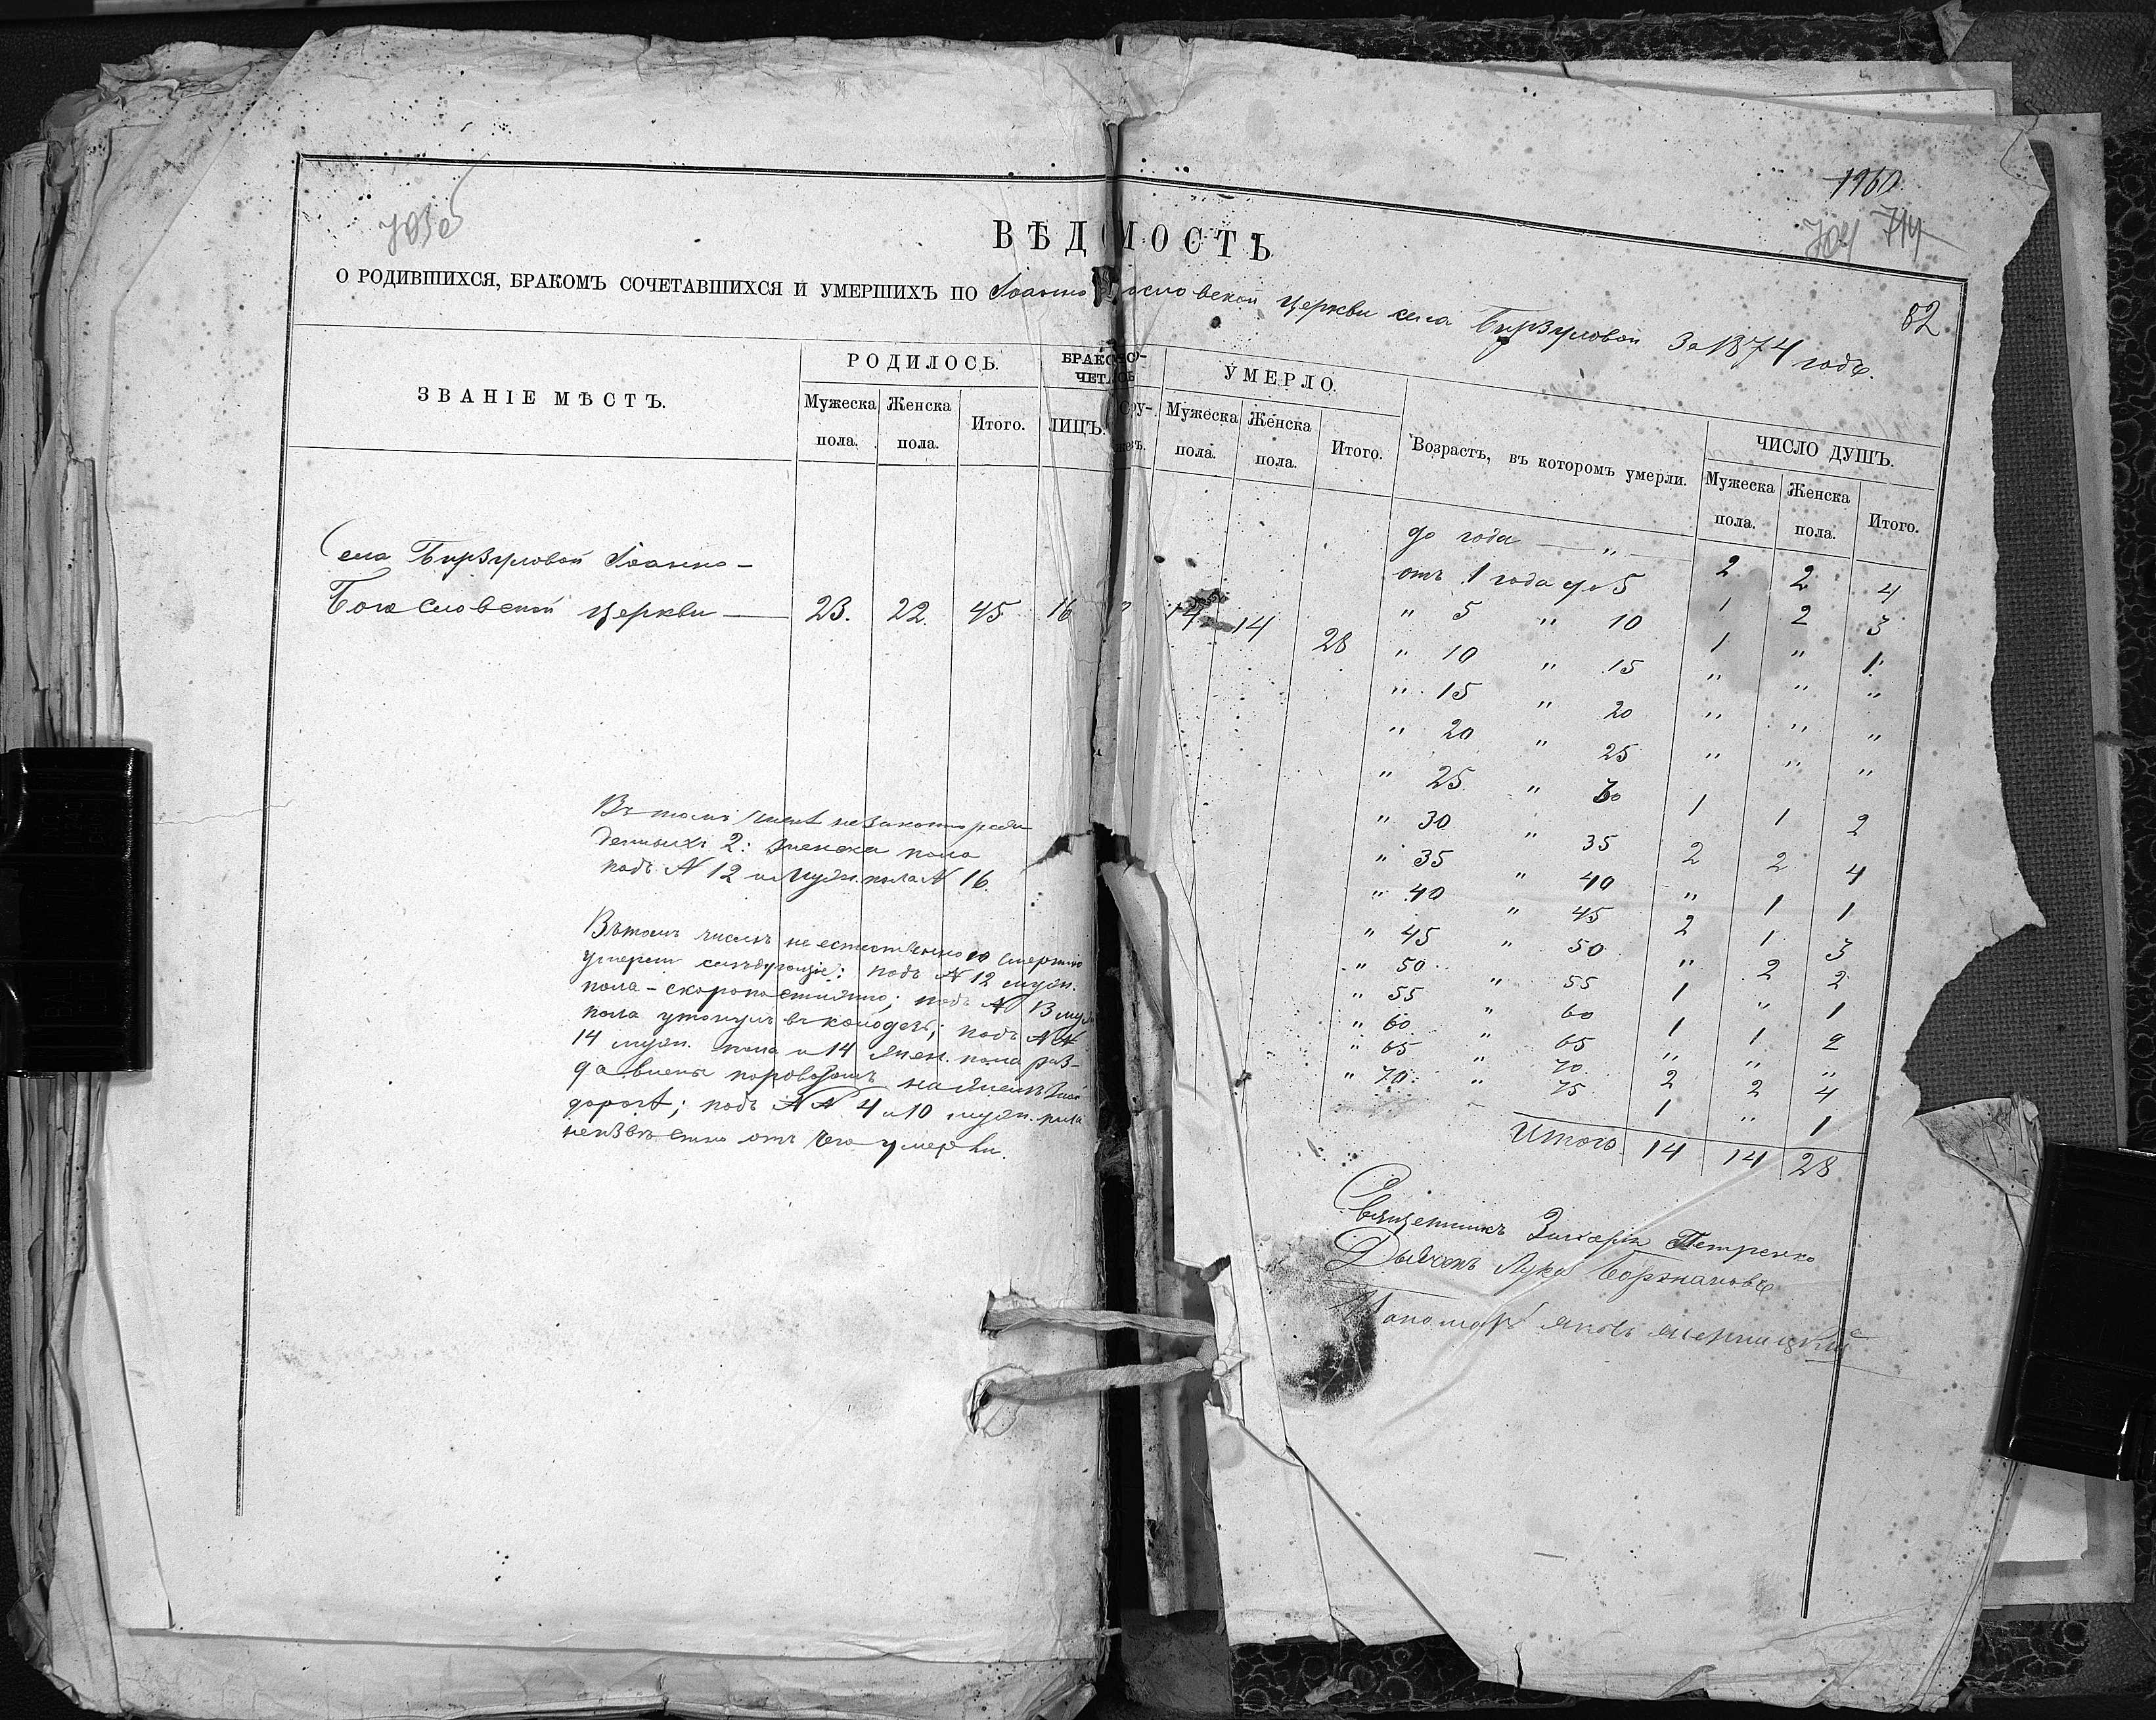 1960
703 об
704 714
ВѢДОМОСТЬ
О РОДИВШИХСЯ, БРАКОМЪ СОЧЕТАВШИХСЯ И УМЕРШИХЪ ПО Іоанно ословской церкви села Бирзуловой За 1874 годъ.
82
ЗВАНІЕ МѢСТЪ. РОДИЛОСЬ. БРАКОСО-ЧЕТЛОСЬ УМЕРЛО. Возрастъ, въ которомъ умерли. ЧИСЛО ДУШЪ.
Мужеска пола. Женска пола. Итого. ЛИЦЪ. Мужеска пола. Женска пола. Итого. Мужеска пола. Женска пола. Итого.
Села Бирзуловой Іоанно-
Богословской церкви — 23. 22. 45 16 14 14 28
до года — " — 2 2 4
отъ 1 года до 5 1 2 3
" 5 " 10 1 " 1.
" 10 " 15 " " "
" 15 " 20 " " "
" 20 " 25 " " "
" 25 " 30 1 1 2
" 30 " 35 2 2 4
" 35 " 40 " 1 1
" 40 " 45 2 1 3
" 45 " 50 " 2 2
" 50 " 55 1 " 1
" 55 " 60 1 1 2
" 60 " 65 " " "
" 65 " 70 2 2 4
" 70 " 75 1 " 1
Итого 14 14 28
Въ томъ числѣ незаконнорож
денныхъ 2: женска пола
подъ N 12 и муж. пола N 16.
Въ томъ числѣ не естественною смертію
умерли слѣдующіе: подъ N 12 муж.
пола – скоропостижно; подъ N 13 муж
пола утонулъ въ колодезѣ; подъ NN
14 муж. пола и 14 жен. пола раз-
давлены паровозомъ на желѣзной
дорогѣ; подъ NN 4 и 10 муж. пола
неизвѣстно отъ чего умерли.
Священникъ Захарія Петренко
Дьячокъ Лука
Пономарь Яковъ